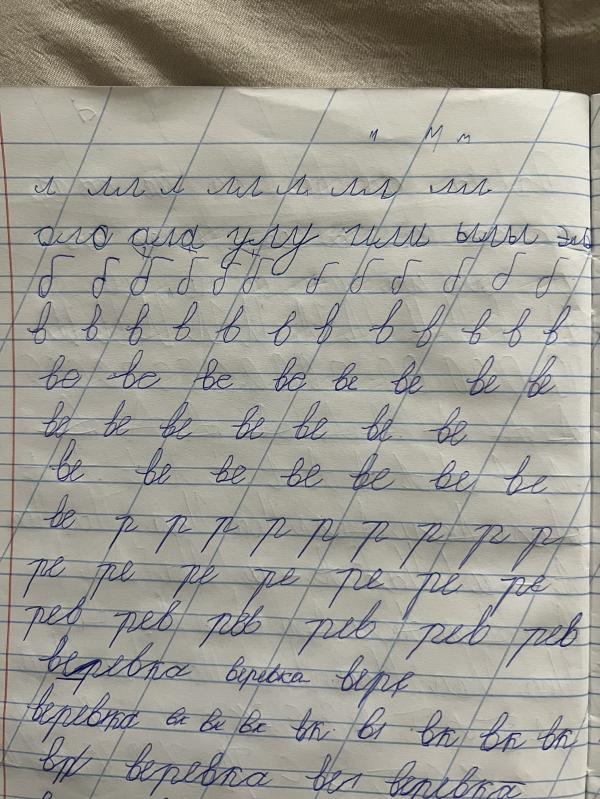 м М м
л лл л лл л лл лл
оло ала улу или ылы эль
б б б б б б б б б б б б
в в в в в в в в в в в в
ве ве ве ве ве ве ве ве
ве ве ве ве ве ве ве
ве ве ве ве ве ве ве
ве р р р р р р р р р
ре ре ре ре ре ре ре
рев рев рев рев рев рев
веревка веревка вере
веревка вк вк вк вк вк вк вк
веревка веревка